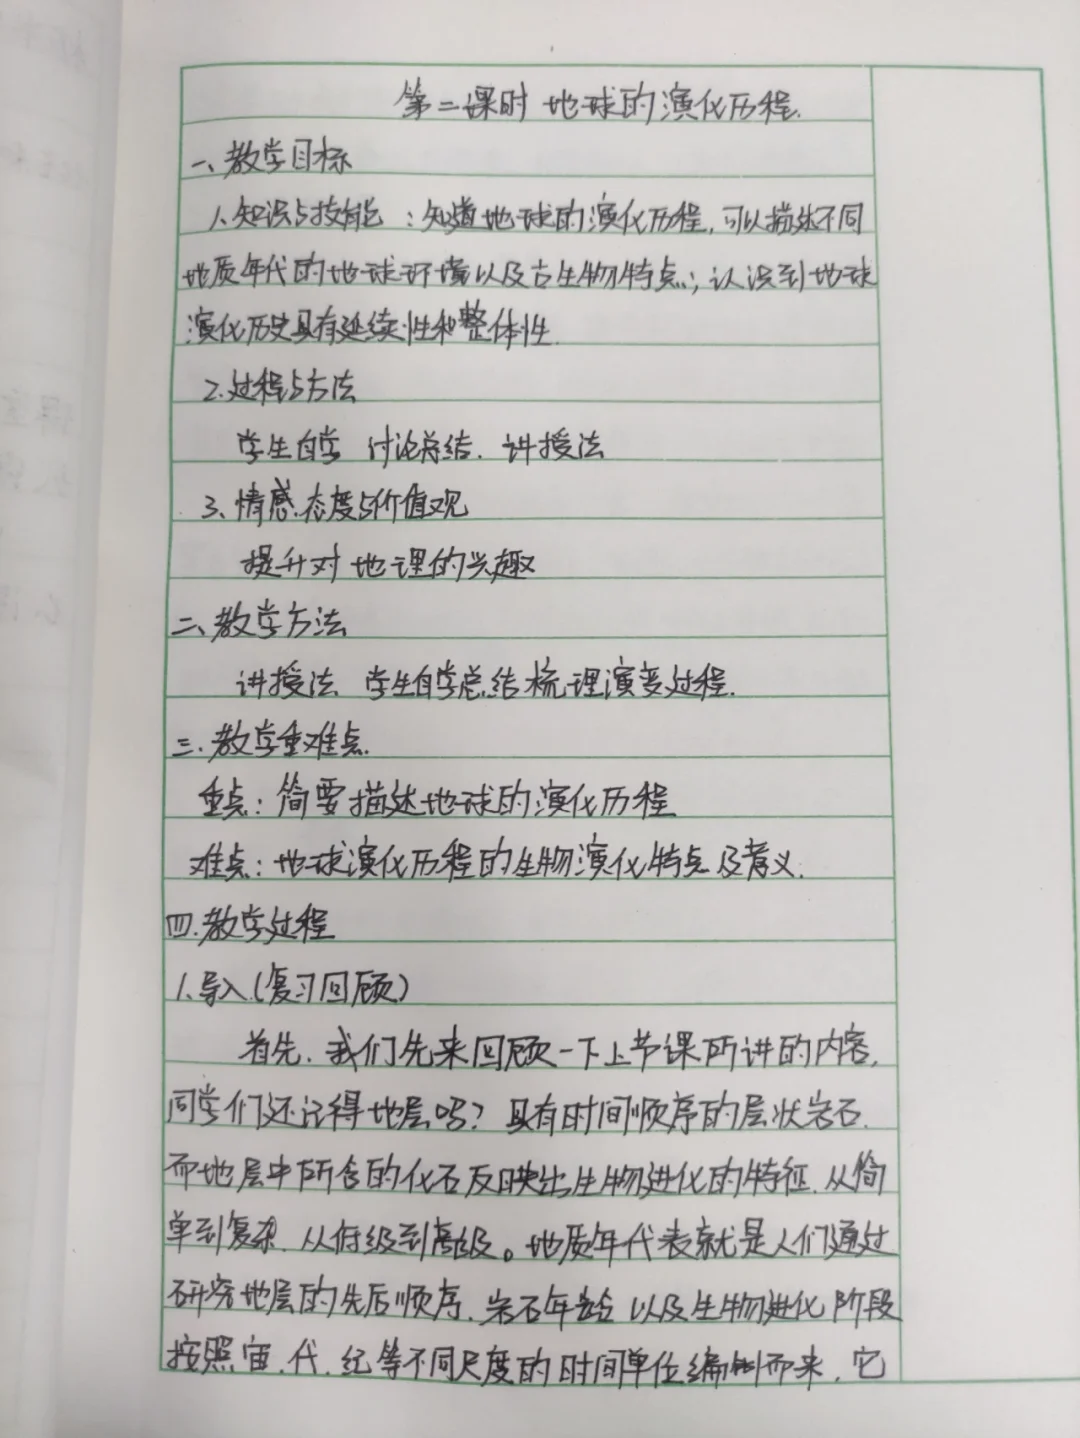 第二课时 地球的演化历程.
一、教学目标
1、知识与技能：知道地球的演化历程,可以描述不同
地质年代的地球环境以及古生物特点；认识到地球
演化历史具有延续性和整体性.
2.过程与方法
学生自学 讨论总结. 讲授法
3、情感.态度与价值观
提升对地理的兴趣
二、教学方法
讲授法 学生自学总结梳理演变过程.
三.教学重难点.
重点：简要描述地球的演化历程
难点：地球演化历程的生物演化特点及意义.
四.教学过程
1.导入(复习回顾)
首先.我们先来回顾一下上节课所讲的内容,
同学们还记得地层吗？具有时间顺序的层状岩石.
而地层中所含的化石反映出生物进化的特征.从简
单到复杂.从低级到高级。地质年代表就是人们通过
研究地层的先后顺序.岩石年龄以及生物进化阶段
按照宙.代.纪等不同尺度的时间单位编制而来.它